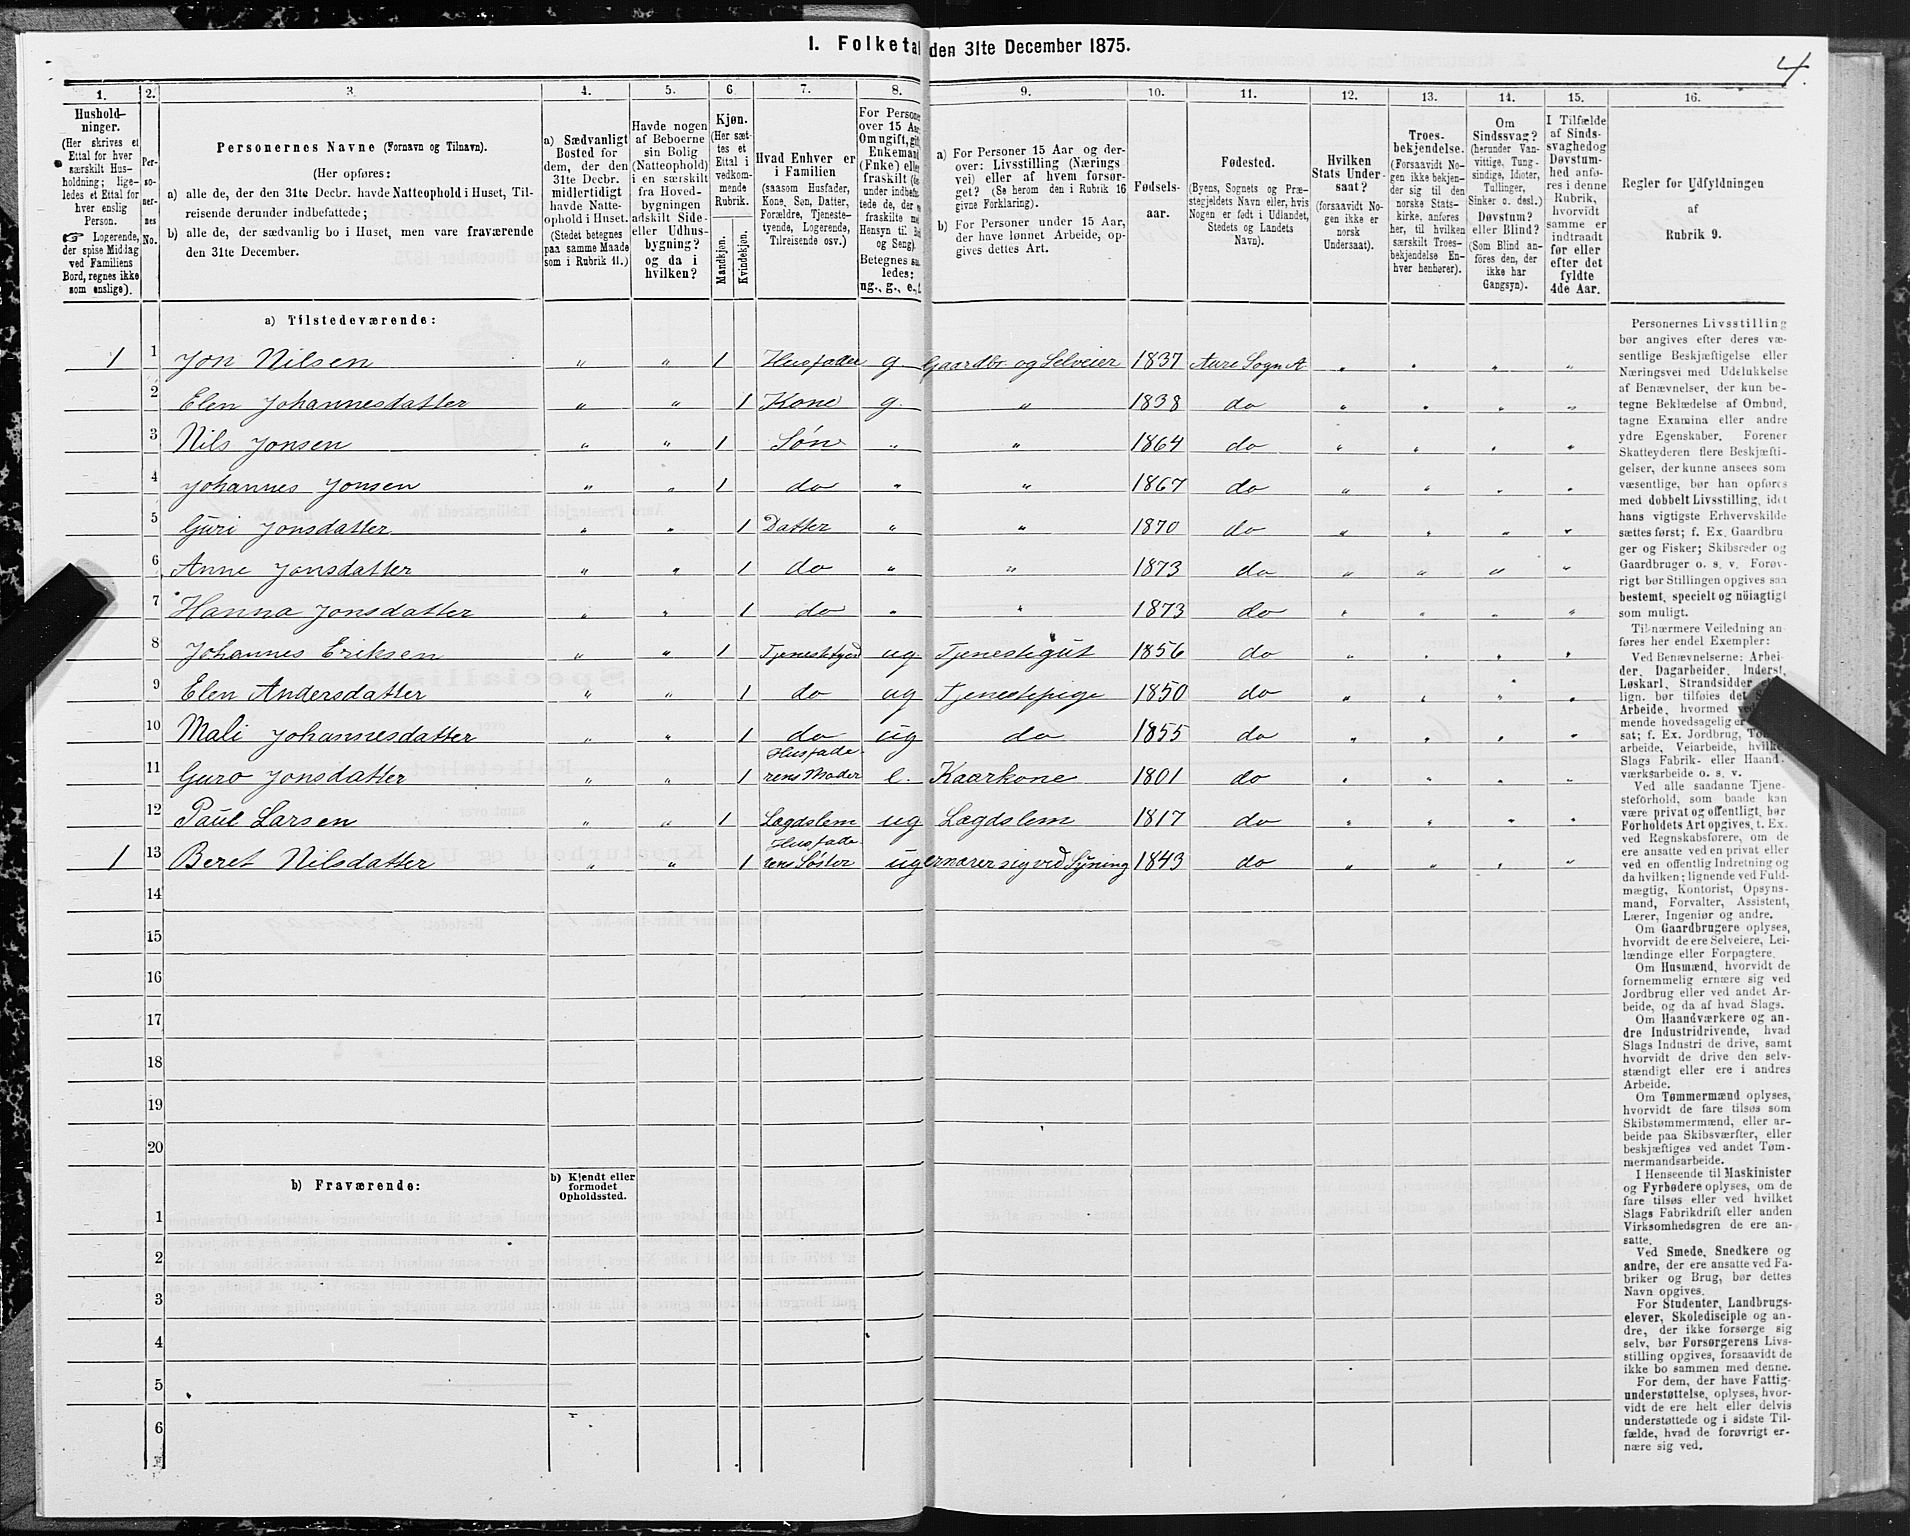 I. Folketal den 31te December 1875.
4.
1. 2. 3. 4. 5. 6 7. 8. 9. 10. 11. 12. 13. 14. 15. 16.
Hushold-
ninger.
(Her skrives et
Ettal for hver
særskilt Hus-
holdning; lige-
ledes et Ettal for
hver enslig
Person.
☞ Logerende,
der spise Middag
ved Familiens
Bord, regnes ikke
som enslige).
Per-
so-
ner-
nes
No.
Personernes Navne (Fornavn og Tilnavn).
(Her opføres:
a) alle de, der den 31te Decbr. havde Natteophold i Huset, Til-
reisende derunder indbefattede;
b) alle de, der sædvanlig bo i Huset, men vare fraværende
den 31te December.
a) Sædvanligt
Bosted for
dem, der den
31te Decbr.
midlertidigt
havde Natte-
ophold i Huset.
(Stedet betegnes
paa samme Maade
som i Rubrik 11.)
Havde nogen
af Beboerne
sin Bolig
(Natteophold)
i en særskilt
fra Hoved-
bygningen
adskilt Side-
eller Udhus-
bygning?
og da i
hvilken?
Kjøn.
(Her sæt-
tes et
Ettal i
vedkom-
mende
Rubrik.
Mandkjøn.
Kvindekjøn.
Hvad Enhver er
i Familien
(saasom Husfader,
Kone, Søn, Datter,
Forældre, Tjeneste-
tyende, Logerende,
Tilreisende osv.)
For Persone
over 15 Aar
Om ugift, gift,
Enkemand
(Enke) eller
fraskilt
under indbefat-
tede de, der
fraskilte m
Hensyn til Bo
og Seng).
Betegnes saa-
ledes:
ug., g., e.,
a) For Personer 15 Aar og der-
over: Livsstilling (Nærings
vei) eller af hvem forsør-
get? (Se herom den i Rubrik 16
givne Forklaring).
b) For Personer under 15 Aar,
der have lønnet Arbeide, op-
gives dettes Art.
Fødsels-
aar.
Fødested.
(Byens, Sognets og Præ-
stegjeldets Navn eller, hvis
Nogen er født i Udlandet,
Stedets og Landets
Navn).
Hvilken
Stats Under-
saat?
(forsaavidt No-
gen ikke er
norsk
Undersaat).
Troes-
bekjendelse.
(Forsaavidt No-
gen ikke bekjen-
der sig til den
norske Stats-
kirke, anføres
her, til hvilken
særskilt Troes-
bekjendelse En-
hver henhører).
Om
Sindssvag?
(herunder Van-
vittige, Tung-
sindige, Idioter,
Tullinger,
Sinker o. desl.)
Døvstum?
eller Blind?
(Som Blind an-
føres den, der
ikke har
Gangsyn).
I Tilfælde
af Sinds-
svaghedog
Døvstum-
hed anfø-
res i denne
Rubrik,
hvorvidt
samme er
indtraadt
før eller
efter det
fyldte
4de Aar.
Regler for Udfyldningen
af
Rubrik 9.
a) Tilstedeværende:
1 1 Jon Nilsen " " 1 Husfader g Gaardbr og Selveier 1837 Aure Sogn A " " " "
2 Elen Johannesdatter " " 1 Kone g. " 1838 do " " " "
3 Nils Jonsen " " 1 Søn " " 1864 do " " " "
4 Johannes Jonsen " " 1 do " " 1867 do " " " "
5 Guri Jonsdatter " " 1 Datter " " 1870 do " " " "
6 Anne Jonsdatter " " 1 do " " 1873 do " " " "
7 Hanna Jonsdatter " " 1 do " " 1873 do " " " "
8 Johannes Eriksen " " 1 Tjenestetyend ug Tjenestegut 1856 do " " " "
9 Elen Andersdatter " " 1 do ug Tjenestepige 1850 do " " " "
10 Mali Johannesdatter " " 1 do ug do 1855 do " " " "
11 Guro Jonsdatter " " 1 Husfade-
rens Moder e. Kaarkone 1801 do " " " "
12 Paul Larsen " " 1 Lægdslem ug Lægdslem 1817 do " " " "
1 13 Beret Nilsdatter " " 1 Husfade-
rens Søster ug ernærer sig ved Syning 1843 do " " " "
14
15
16
17
18
19
20
b) Fraværende:
b) Kjendt eller
formodet
Opholdssted.
1
2
3
4
5
6
Personernes Livsstilling
bør angives efter deres væ-
sentlige Beskjæftigelse eller
Næringsvei med Udelukkelse
af Benævnelser, der kun be-
tegne Beklædelse af Ombud,
tagne Examina eller andre
ydre Egenskaber. Forener
Skatteyderen flere Beskjæfti-
gelser, der kunne ansees som
væsentlige, bør han opføres
med dobbelt Livsstilling, idet
hans vigtigste Erhvervskilde
sættes først; f. Ex. Gaardbru-
ger og Fisker; Skibsreder og
Gaardbruger o. s. v. Forøv-
rigt bør Stillingen opgives saa
bestemt, specielt og nøiagtigt
som muligt.
Til nærmere Veiledning an-
føres her endel Exempler:
Ved Benævnelserne: Arbei-
der, Dagarbeider, Inderst,
Løskarl, Strandsidder
lign. bør tilføies det
Arbeide, hvormed
mende hovedsagelig er
sat; f. Ex. Jordbrug,
arbeide, Veiarbeide, hvilket
Slags Fabrik- eller Haand-
værksarbeide o. s. v.
Ved alle saadanne Tjene-
steforhold, som baade kan
være privat og offentligt, bør
Forholdets Art opgives, t. Ex.
ved Regnskabsførere, om de
ere ansatte ved en privat eller
ved en offentlig Indretning og
da hvilken; lignende ved Fuld-
mægtig, Kontorist, Opsyns-
mand, Forvalter, Assistent,
Lærer, Ingeniør og andre.
Om Gaardbrugere oplyses,
hvorvidt de ere Selveiere, Lei-
lændinge eller Forpagtere.
Om Husmænd, hvorvidt de
fornemmelig ernære sig ved
Jordbrug eller ved andet Ar-
beide, og da af hvad Slags.
Om Haandværkere og an-
dre Industridrivende, hvad
Slags Industri de drive, samt
hvorvidt de drive den selv-
stændigt eller ere i andres
Arbeide.
Om Tømmermænd oplyses,
hvorvidt de fare tilsøs som
Skibstømmermænd, eller ar-
beide paa Skibsværfter, eller
beskjæftiges ved andet Tøm-
mermandsarbeide.
I Henseende til Maskinister
og Fyrbødere oplyses, om de
fare tilsøs eller ved hvilket
Slags Fabrikdrift eller anden
Virksomhedsgren de ere an-
satte.
Ved Smede, Snedkere og
andre, der ere ansatte ved Fa-
briker og Brug, bør dettes
Navn opgives.
For Studenter, Landbrugs-
elever, Skoledisciple og an-
dre, der ikke forsørge sig
selv, bør Forsørgerens Livs-
stilling opgives, forsaavidt de
ikke bo sammen med denne.
For dem, der have Fattig-
understøttelse, oplyses, hvor-
vidt de ere helt eller delvis
understøttede og i sidste Til-
fælde, hvad de forøvrigt er-
nære sig ved.